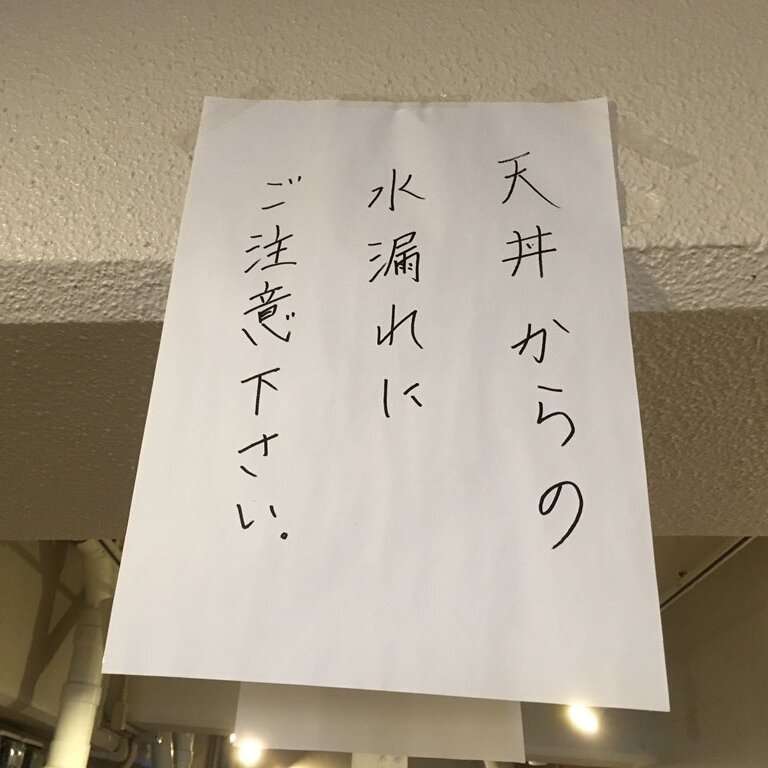 天丼からの
水漏れに
ご注意下さい.